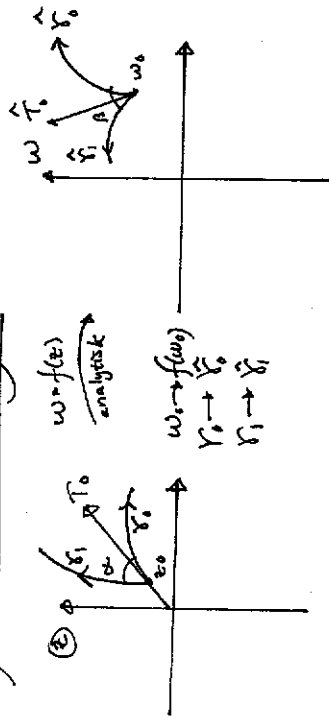 z
γ₁
T₀
α
γ₀
z₀
w=f(z)
analytisk
w₀→f(w₀)
γ₀→γ̂₀
γ₁→γ̂₁
w
T̂₀
γ̂₀
γ̂₁
β
w₀